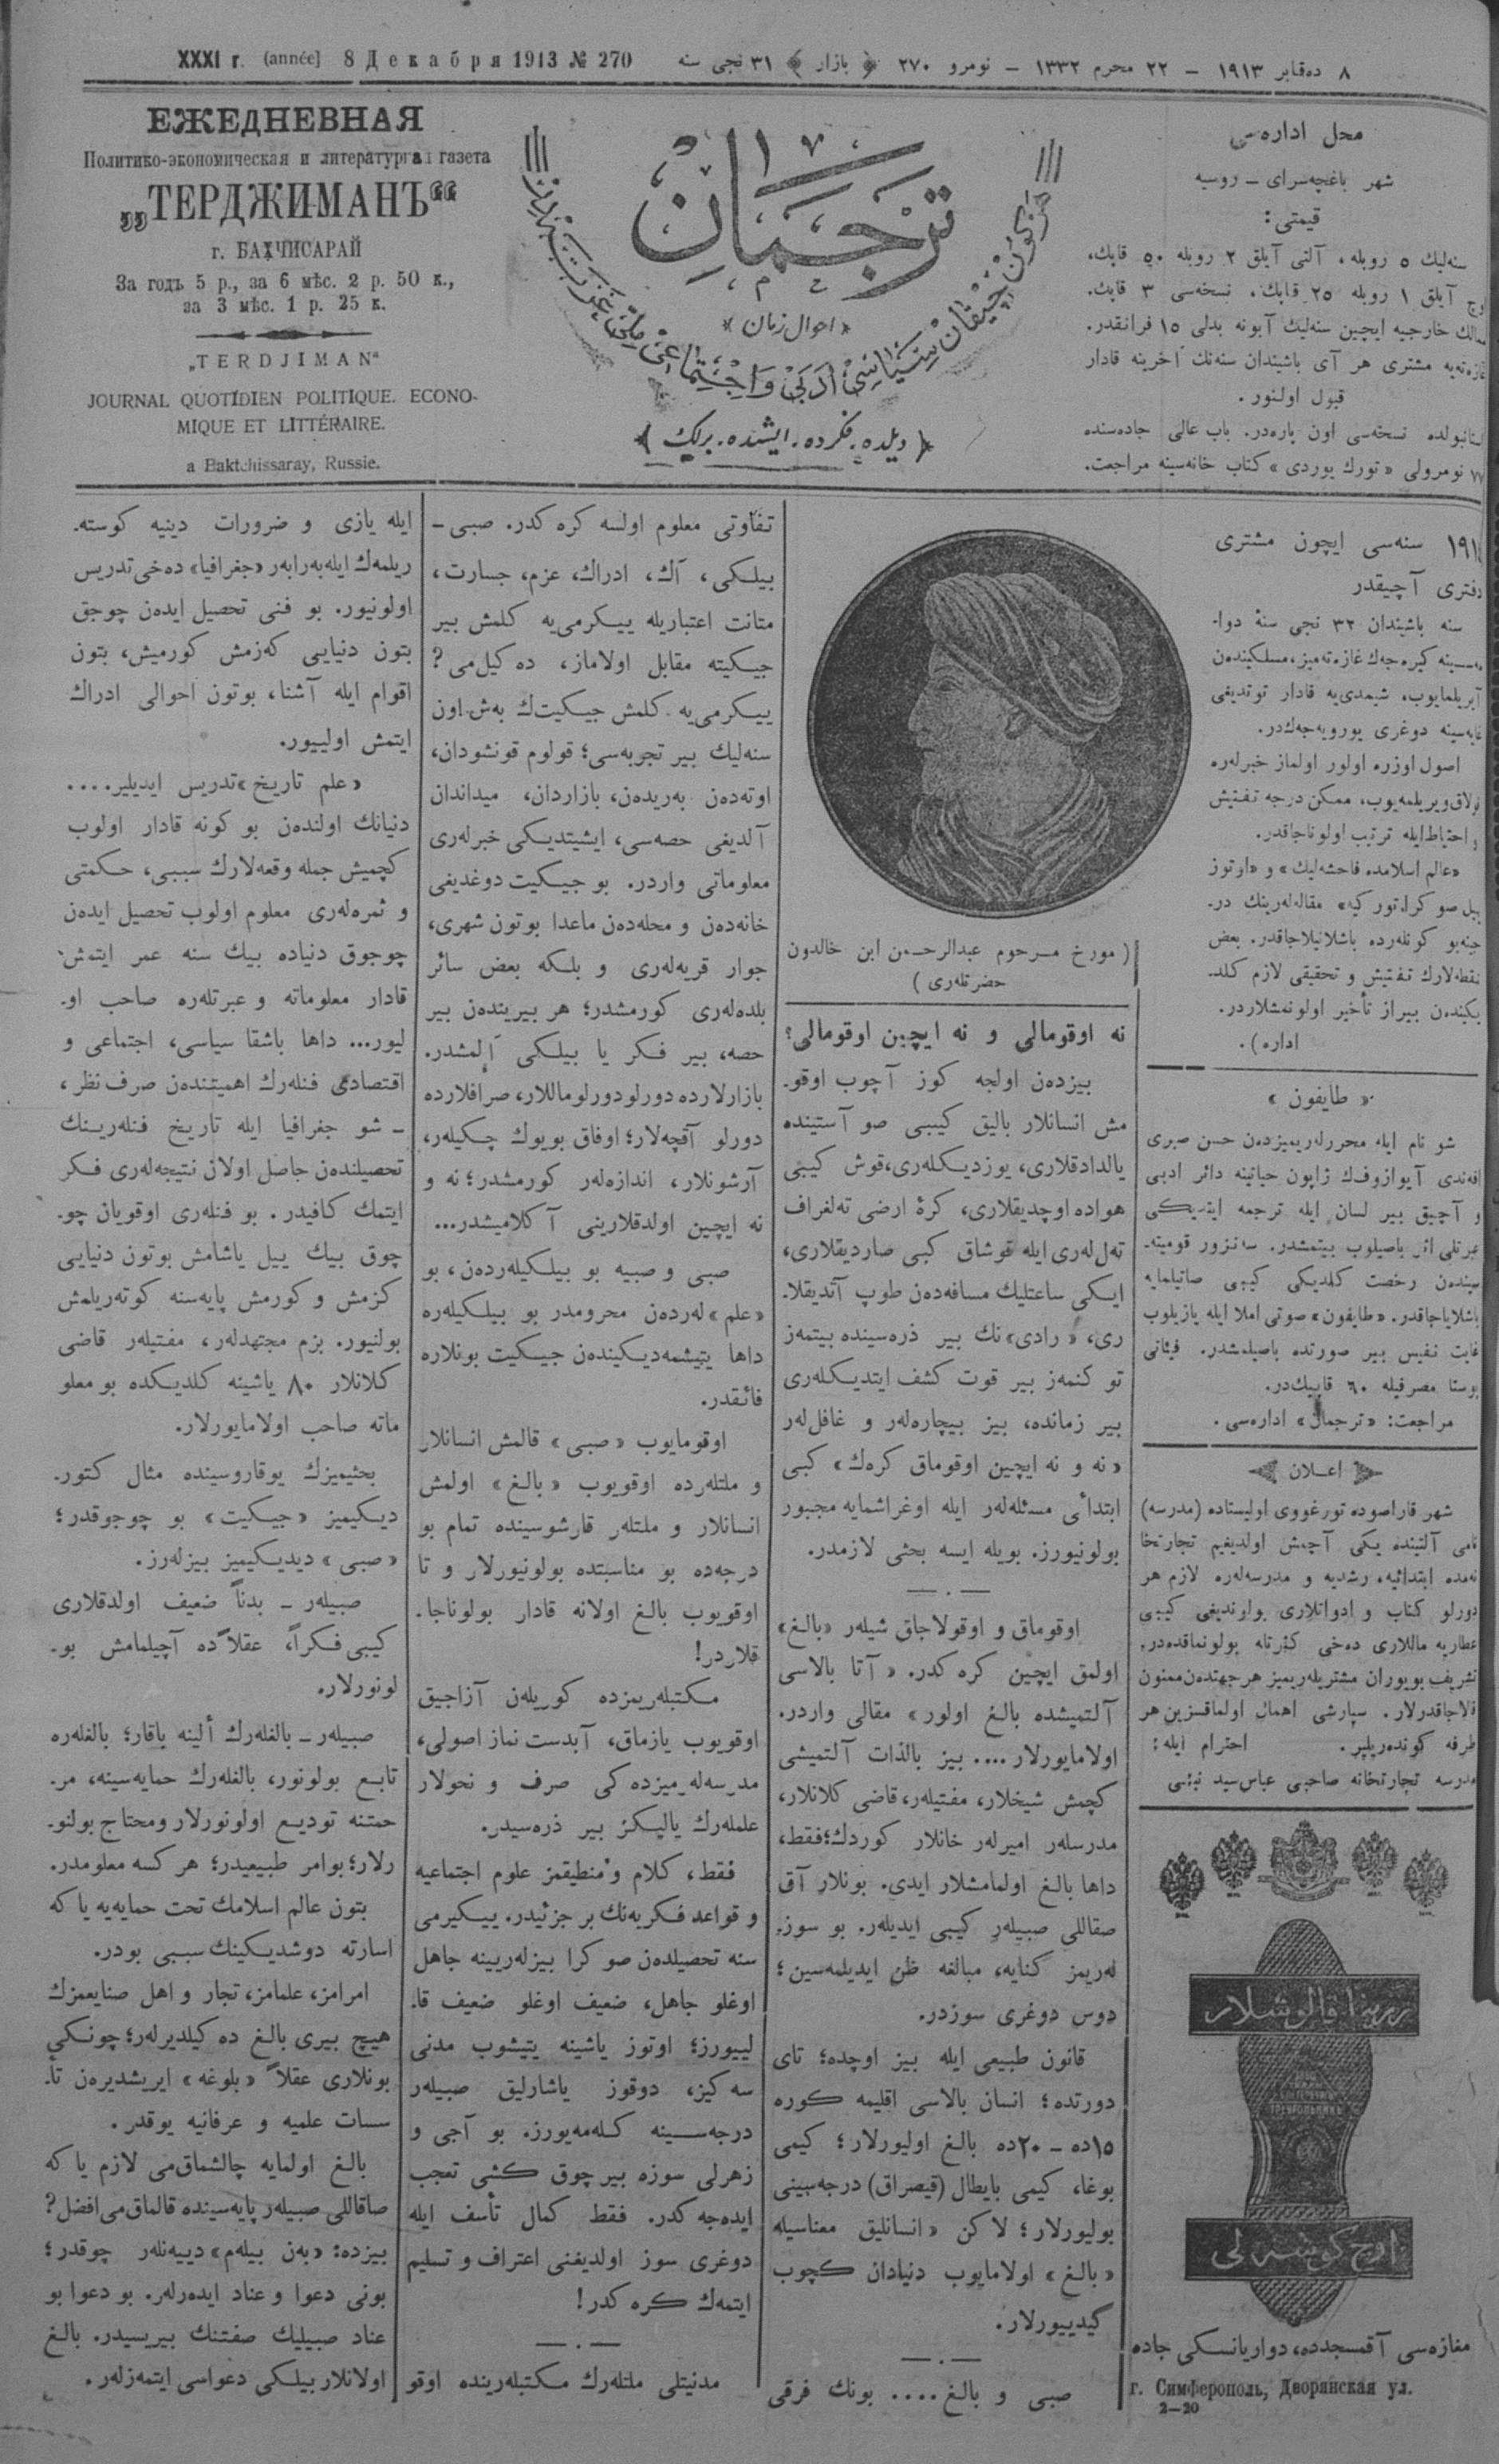 ٨ ده‌قابر ١٩١٣ – ٢٢ محرم ١٣٣٢ – نومرو ٢٧٠ ﴿ بازار ﴾ ٣١ نجی سنه
XXXI г. (année) 8 Декабря 1913 № 270
ЕЖЕДНЕВНАЯ
Политико-экономическая и литературная газета
„ТЕРДЖИМАНЪ“
г. БАХЧИСАРАЙ
За годъ 5 р., за 6 мѣс. 2 р. 50 к.,
за 3 мѣс. 1 р. 25 к.
„TERDJIMAN“
JOURNAL QUOTIDIEN POLITIQUE. ECONO-
MIQUE ET LITTÉRAIRE.
a Baktchissaray, Russie.
ترجمان
« احوال زمان »
﴿ دیلده . فکرده . ایشده . برلك ﴾
محل اداره‌سی
شهر باغچه‌سرای – روسیه
قیمتی :
سنه‌لیك ٥ روبله، آلتی آیلق ٢ روبله ٥٠ قاپك،
آیلق ١ روبله ٢٥ قاپك. نسخه‌سی ٣ قاپك.
خارجیه ایچین سنه‌لیك آبونه بدلی ١٥ فرانقدر.
مشتری هر آی باشیندان سنه‌نك آخرینه قادار
قبول اولنور .
نسخه‌سی اون پاره‌در. باب عالی جاده‌سنده
نومرولی « تورك یوردی » کتاب خانه‌سینه مراجعت.
سنه‌سی ایچون مشتری
دفتری آچیقدر
سنه باشیندان ٣٢ نجی سنهٔ دوا-
کیره‌جه‌ك غازه‌ته‌میز، مسلکیندن
آیریلمایوب، شیمدی‌یه قادار توتدیغی
غایه‌سینه دوغری یورویه‌جه‌کدر.
اصول اوزره اولور اولماز خبرلره
قولاق ویریلمه‌یوب، ممکن درجه تفتیش
و احتیاط ایله ترتیب اولوناجاقدر.
«عالم اسلامده فاحشه‌لیك» و «اوتوز
ییل صوکرا تورکیه» مقاله‌لرینك در-
جینه بو کونلرده باشلانیلاجاقدر. بعض
نقطه‌لارك تفتیش و تحقیقی لازم کلد-
یکیندن بیراز تأخیر اولونمشلاردر.
اداره) .
« طایفون »
شو نام ایله محررلریمیزدن حسن صبری
افندی آیوازوفك ژاپون حیاتینه دائر ادبی
و آچیق بیر لسان ایله ترجمه ایتدیکی
عبرتلی اثر باصیلوب بیتمشدر. سه‌نزور قومیته-
سیندن رخصت کلدیکی کیبی صاتیلمایه
باشلایاجاقدر. «طایفون» صوتی املا ایله یازیلوب
غایت نفیس بیر صورتده باصیلمشدر. فیئاتی
پوستا مصرفیله ٦٠ قاپیك‌در.
مراجعت: «ترجمان» اداره‌سی .
اعـلان
شهر قاراصوده تورغووی اولیستاده (مدرسه)
نامی آلتینده یکی آچمش اولدیغیم تجارتخا
نه‌مده ابتدائیه، رشدیه و مدرسه‌لره لازم هر
دورلو کتاب و ادواتلاری بولوندیغی کیبی
عطاریه ماللاری ده‌خی کثرتله بولونماقده‌در.
تشریف بویوران مشتریلریمیز هر جهتدن ممنون
قالاجاقدرلار . سپارشی اهمال اولماقسزین هر
طرفه کونده‌ریلیر. احترام ایله :
مدرسه تجارتخانه صاحبی عباس سید نبی
رزینا قالوشلار
اوچ کوشه‌لی
مغازه‌سی آقمسجدده، دواریانسکی جاده
г. Симферополь, Дворянская ул.
2—20
( مورخ مرحوم عبدالرحمن ابن خالدون
حضرتلری )
نه اوقومالی و نه ایچین اوقومالی؟
بیزدن اولجه کوز آچوب اوقو-
مش انسانلار بالیق کیبی صو آستینده
یالدادقلاری، یوزدیکلری، قوش کیبی
هواده اوچدیقلاری، کرهٔ ارضی ته‌لغراف
ته‌ل‌لری ایله قوشاق کبی صاردیقلاری،
ایکی ساعتلیك مسافه‌دن طوپ آتدیقلا-
ری، « رادی» نك بیر ذره‌سینده بیتمه‌ز
توکنمه‌ز بیر قوت کشف ایتدیکلری
بیر زمانده، بیز بیچاره‌لر و غافل‌لر
« نه و نه ایچین اوقوماق کره‌ك » کبی
ابتدائی مسئله‌لر ایله اوغراشمایه مجبور
بولونیورز. بویله ایسه بحثی لازمدر.
اوقوماق و اوقولاجاق شیلر «بالغ»
اولمق ایچین کره‌کدر. « آتا بالاسی
آلتمیشده بالغ اولور » مقالی واردر.
اولامایورلار .... بیز بالذات آلتمیشی
کچمش شیخلار، مفتیلر، قاضی کلانلار،
مدرسلر امیرلر خانلار کوردك؛ فقط،
داها بالغ اولمامشلار ایدی. بونلار آق
صقاللی صبیلر کیبی ایدیلر. بو سوز-
لریمز کنایه، مبالغه ظن ایدیلمه‌سین ؛
دوس دوغری سوزدر.
قانون طبیعی ایله بیز اوچده؛ تای
دورتده ؛ انسان بالاسی اقلیمه کوره
١٥ده – ٢٠ده بالغ اولیورلار ؛ کیمی
بوغا، کیمی بایطال (قیصراق) درجه‌سینی
بولیورلار ؛ لاکن « انسانلیق معناسیله
« بالغ » اولامایوب دنیادان کچوب
گیدیبورلار.
صبی و بالغ .... بونك فرقی
تفاوتی معلوم اولسه کره‌کدر. صبی –
بیلکی، آك، ادراك، عزم، جسارت،
متانت اعتباریله ییکرمی‌یه کلمش بیر
جیکیته مقابل اولاماز، ده‌کیل‌می?
ییکرمی‌یه کلمش جیکیت‌ك به‌ش اون
سنه‌لیك بیر تجربه‌سی؛ قولوم قونشودان،
اوته‌دن به‌ریدن، بازاردان، میداندان
آلدیغی حصه‌سی، ایشیتدیکی خبرلری
معلوماتی واردر. بو جیکیت دوغدیغی
خانه‌دن و محله‌دن ماعدا بوتون شهری،
جوار قریه‌لری و بلکه بعض سائر
بلده‌لری کورمشدر؛ هر بیریندن بیر
حصه، بیر فکر یا بیلکی آلمشدر.
بازارلارده دورلو دورلو ماللار، صرافلارده
دورلو آقچه‌لار؛ اوفاق بویوك چکیلر،
آرشونلار، اندازه‌لر کورمشدر؛ نه و
نه ایچین اولدقلارینی آکلامیشدر...
صبی و صبیه بو بیلکیلردن، بو
«علم» لردن محرومدر بو بیلکیلره
داها یتیشمه‌دیکیندن جیکیت بونلاره
فائقدر.
اوقومایوب « صبی » قالمش انسانلار
و ملتلرده اوقویوب « بالغ » اولمش
انسانلار و ملتلر قارشوسینده تمام بو
درجه‌ده بو مناسبتده بولونیورلار و تا
اوقویوب بالغ اولانه قادار بولوناجا-
قلاردر!
مکتبلریمزده کوریلن آزاجیق
اوقویوب یازماق، آبدست نماز اصولی،
مدرسه‌لریمیزده‌کی صرف و نحولار
علملرك یالیکز بیر ذره‌سیدر.
فقط، کلام و منطیقمز علوم اجتماعیه
و قواعد فکریه‌نك بر جزئیدر. ییکیرمی
سنه تحصیلدن صوکرا بیزلرینه جاهل
اوغلو جاهل، ضعیف اوغلو ضعیف قا-
لییورز؛ اوتوز یاشینه یتیشوب مدنی
سه‌کیز، دوقوز یاشارلیق صبیلر
درجه‌سینه کله‌مه‌یورز. بو آجی و
زهرلی سوزه بیر چوق کشی تعجب
ایده‌جه‌کدر. فقط کمال تأسف ایله
دوغری سوز اولدیغنی اعتراف و تسلیم
ایتمه‌ك کره‌کدر!
مدنیتلی ملتلرك مکتبلرینده اوقو
ایله یازی و ضرورات دینیه کوسته-
ریلمه‌ك ایله به‌رابه‌ر «جغرافیا» ده‌خی تدریس
اولونیور. بو فنی تحصیل ایدن چوجق
بتون دنیایی که‌زمش کورمیش، بتون
اقوام ایله آشنا، بوتون احوالی ادراك
ایتمش اولییور.
«علم تاریخ» تدریس ایدیلیر....
دنیانك اولندن بو کونه قادار اولوب
کچمیش جمله وقعه‌لارك سببی، حکمتی
و ثمره‌لری معلوم اولوب تحصیل ایدن
چوجوق دنیاده بیك سنه عمر ایتمش
قادار معلوماته و عبرتلره صاحب او-
لیور... داها باشقا سیاسی، اجتماعی و
اقتصادی فنلرك اهمیتندن صرف نظر،
– شو جغرافیا ایله تاریخ فنلرینك
تحصیلندن حاصل اولان نتیجه‌لری فکر
ایتمك کافیدر. بو فنلری اوقویان چو-
چوق بیك ییل یاشامش بوتون دنیایی
کزمش و کورمش پایه‌سنه کوته‌ریلمش
بولنیور. بزم مجتهدلر، مفتیلر، قاضی
کلانلار ٨٠ یاشینه کلدیکده بو معلو
ماته صاحب اولامایورلار.
بحثیمیزك یوقاروسینده مثال کتور-
دیکیمیز « جیکیت » بو چوجوقدر ؛
«صبی» دیدیکیمیز بیزلرز.
صبیلر – بدناً ضعیف اولدقلاری
کیبی فکراً، عقلاً ده آچیلمامش بو-
لونورلار.
صبیلر – بالغلرك ألینه باقار؛ بالغلره
تابع بولونور، بالغلرك حمایه‌سینه، مر-
حمتنه تودیع اولونورلار و محتاج بولنو-
رلار؛ بوامر طبیعیدر؛ هر کسه معلومدر.
بتون عالم اسلامك تحت حمایه‌یه یا که
اسارته دوشدیکینك سببی بودر.
امرامز، علمامز، تجار و اهل صنایعمزك
هیچ بیری بالغ ده‌کیلدیرلر؛ چونکی
بونلاری عقلاً « بلوغه » ایریشدیره‌ن تأ-
سسات علمیه و عرفانیه یوقدر .
بالغ اولمایه چالشماق‌می لازم یا که
صاقاللی صبیلر پایه‌سینده قالماق‌می افضل?
بیزده: «به‌ن بیله‌م» دییه‌نلر چوقدر ؛
بونی دعوا و عناد ایده‌رلر. بو دعوا بو
عناد صبیلیك صفتنك بیریسیدر. بالغ
اولانلار بیلکی دعواسی ایتمه‌زلر .